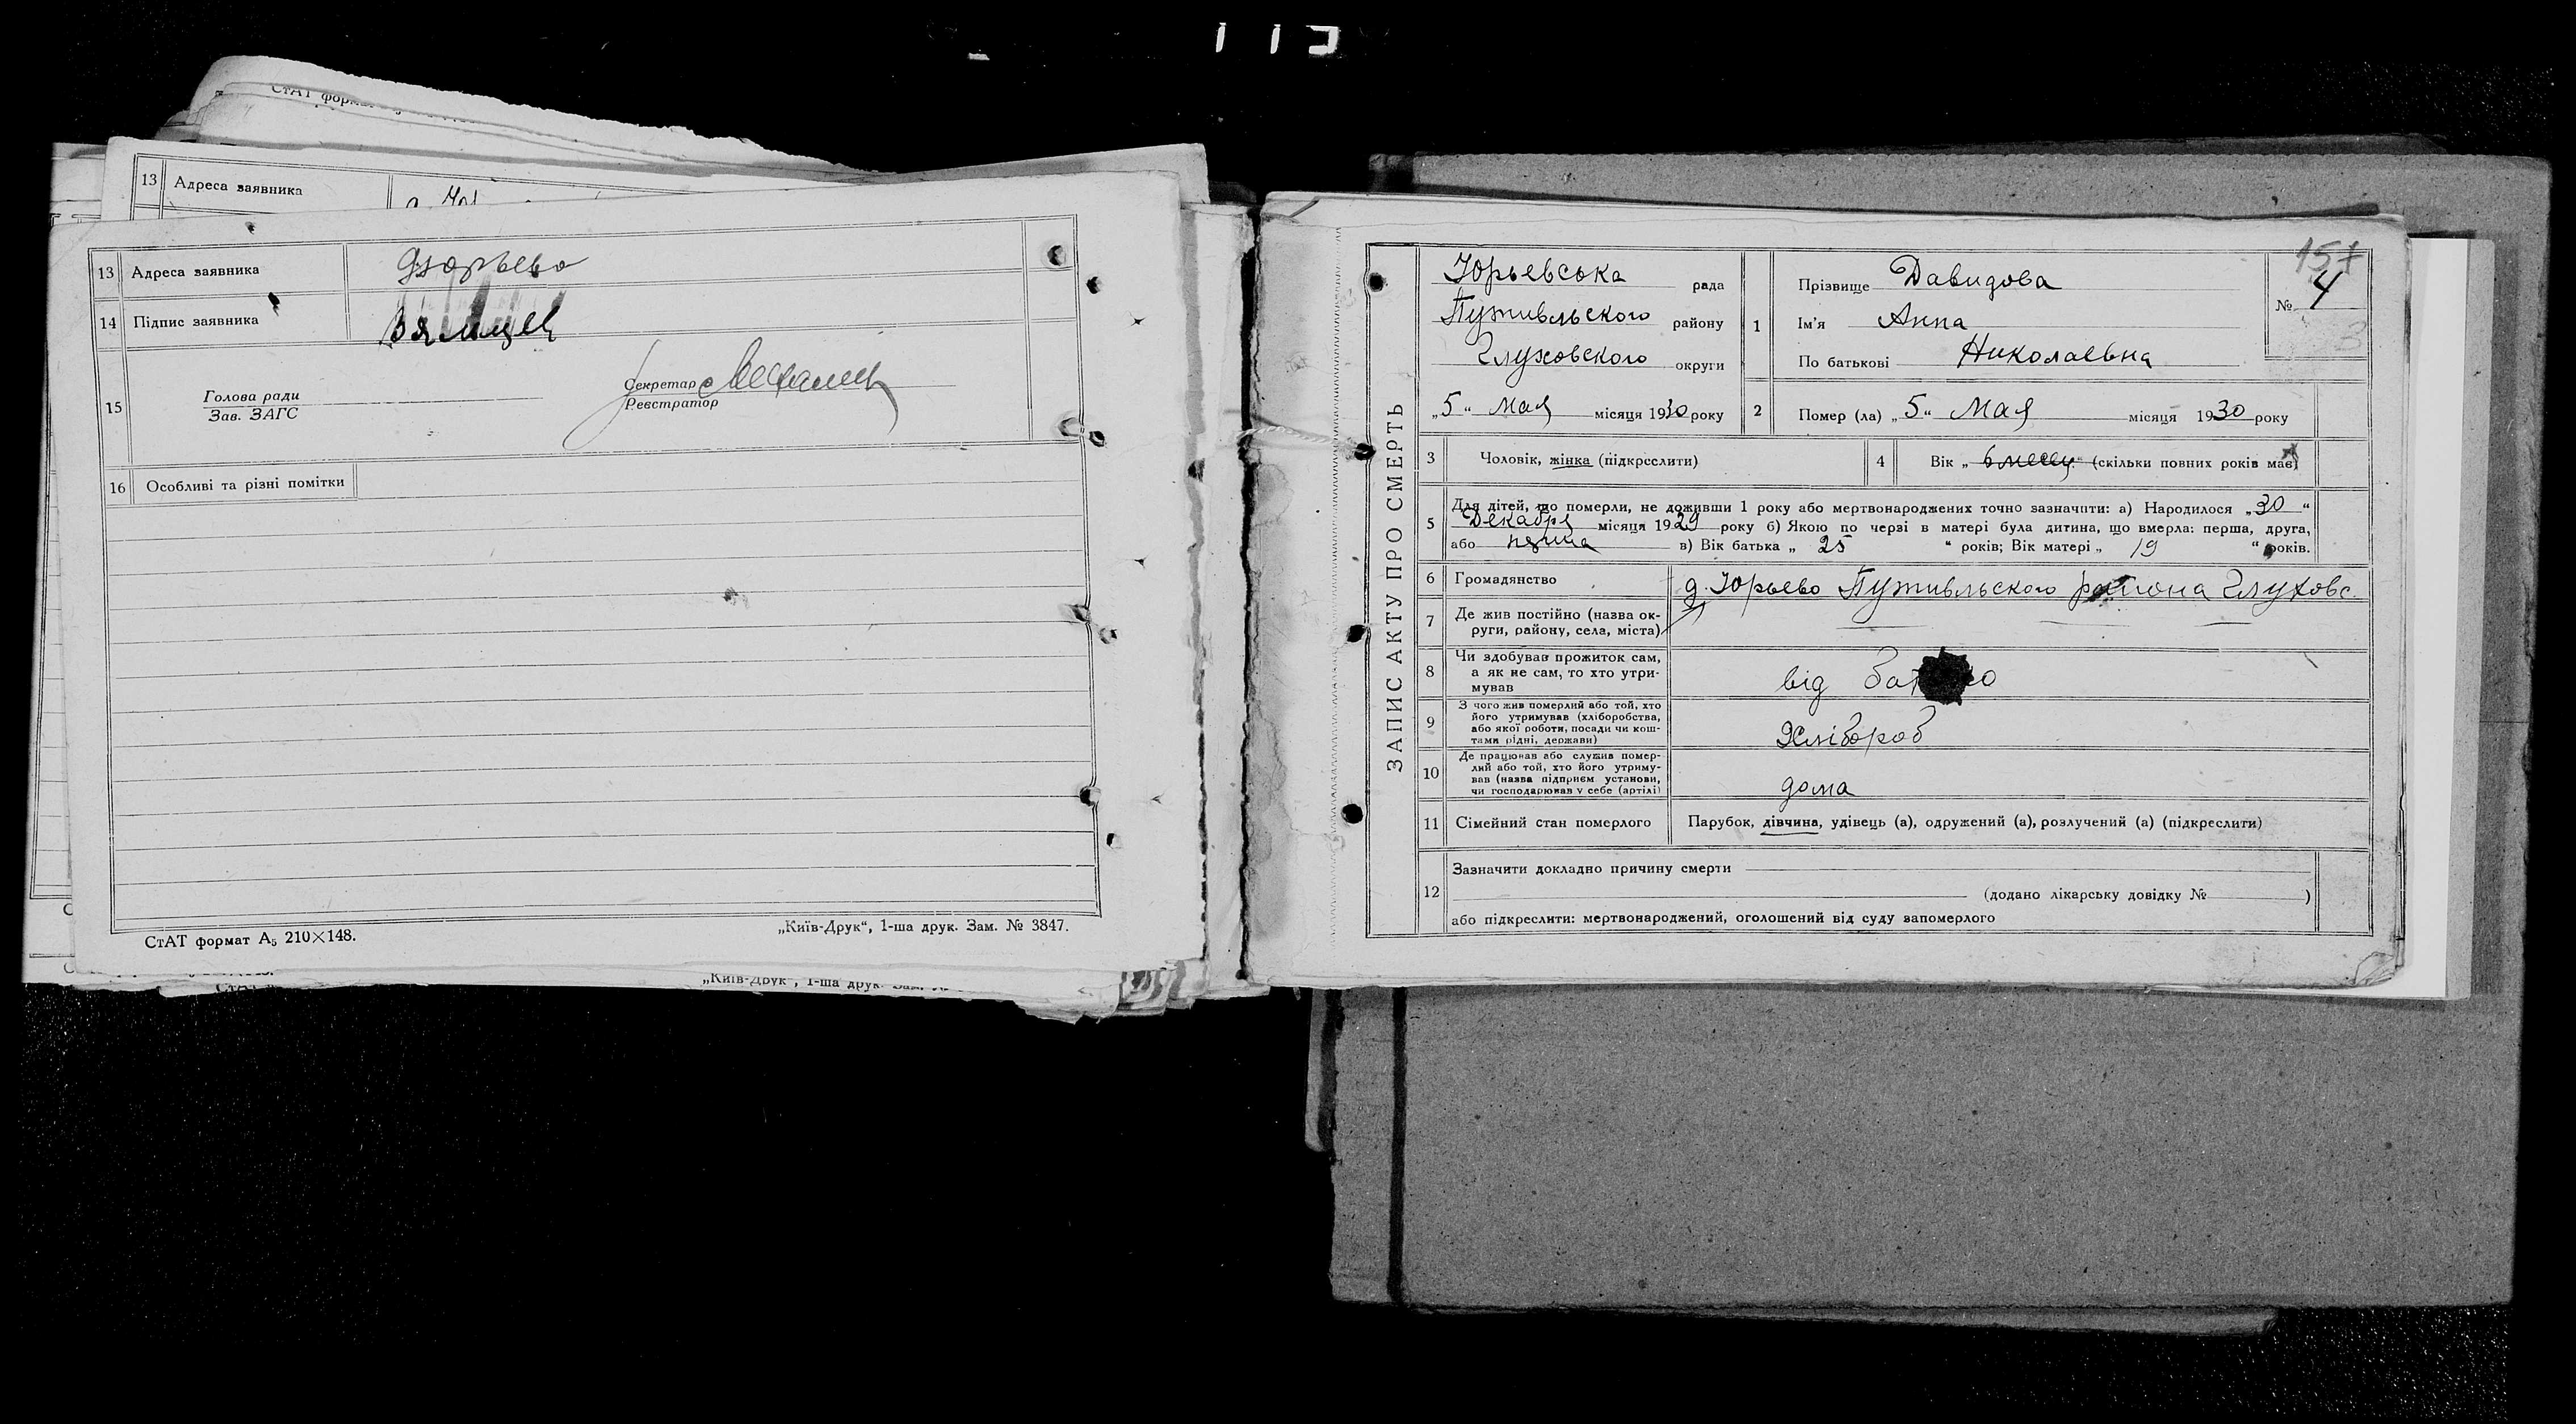 СтАТ форм
13 Адреса заявника
13 Адреса заявника д Юрьево
14 Підпис заявника
15 Голова ради
Зав. ЗАГС
Секретар
Реєстратор
16 Особливі та різні помітки
СтАТ формат А₅ 210×148.
„Київ-Друк“, 1-ша друк. Зам. № 3847.
„Київ-Друк“, 1-ша друк. Зам.
ЗАПИС АКТУ ПРО СМЕРТЬ
157
Юрьевська рада
Путивльского району
Глуховского округи
„5“ Мая місяця 1930 року
1 Прізвище Давидова
Ім'я Анна
По батькові Николаевна
№ 4
3
2 Помер (ла) „5“ Мая місяця 1930 року
3 Чоловік, жінка (підкреслити)
4 Вік „ 6 месяц “ (скільки повних років має)
5 Для дітей, що померли, не доживши 1 року або мертвонароджених точно зазначити: а) Народилося „30“
Декабря місяця 1929 року б) Якою по черзі в матері була дитина, що вмерла: перша, друга,
або в) Вік батька „ 25 “ років; Вік матері „ 19 “ років.
6 Громадянство д. Юрьево Путивльского района Глуховс.
7 Де жив постійно (назва ок-
руги, району, села, міста)
8 Чи здобував прожиток сам,
а як не сам, то хто утри-
мував
від
9 З чого жив померлий або той, хто
його утримував (хліборобства,
або якої роботи, посади чи кош-
тами рідні, держави)
Хлібороб
10 Де працював або служив помер-
лий або той, хто його утриму-
вав (назва підприєм установи,
чи господарював у себе (артілі)
дома
11 Сімейний стан померлого Парубок, дівчина, удівець (а), одружений (а), розлучений (а) (підкреслити)
12 Зазначити докладно причину смерти
(додано лікарську довідку № )
або підкреслити: мертвонароджений, оголошений від суду запомерлого